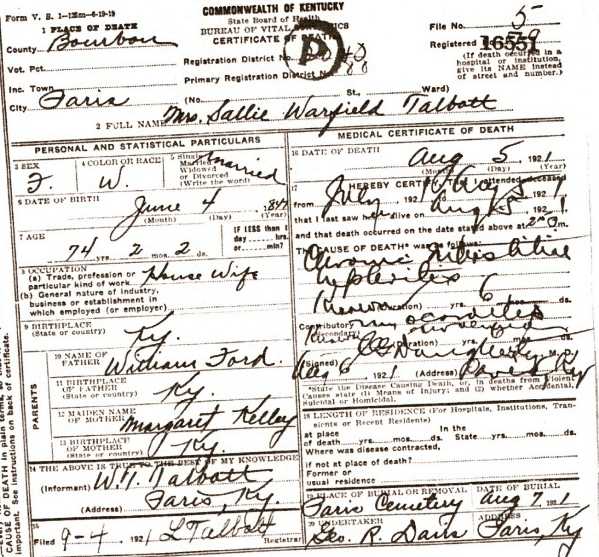 Form V. S. 1—12
COMMONWEALTH OF KENTUCKY
State Board of Health
BUREAU OF VITAL STATISTICS
CERTIFICATE OF DEATH
File No. 5
1 PLACE OF DEATH
County Bourbon
Registration District No.
Registered
16551
(If death occurred in a hospital or institution, give its NAME instead of street and number.)
Vot. Pct.
Primary Registration District No.
Inc. Town
City Paris (No. St., Ward)
2 FULL NAME Mrs. Sallie Warfield Talbott
PERSONAL AND STATISTICAL PARTICULARS
3 SEX
F.
4 COLOR OR RACE
W.
5 Single
Married
Widowed
or Divorced
(Write the word)
Married
6 DATE OF BIRTH
June 4, 1847
(Month) (Day) (Year)
7 AGE
74 yrs. 2 mos. 2 ds.
IF LESS than 1 day hrs. or min.?
8 OCCUPATION
(a) Trade, profession or particular kind of work House Wife
(b) General nature of industry, business or establishment in which employed (or employer)
9 BIRTHPLACE
(State or country) Ky.
PARENTS
10 NAME OF FATHER William Ford.
11 BIRTHPLACE OF FATHER
(State or country) Ky.
12 MAIDEN NAME OF MOTHER Margaret Kelley
13 BIRTHPLACE OF MOTHER
(State or country) Ky.
14 THE ABOVE IS TRUE TO THE BEST OF MY KNOWLEDGE
(Informant) W. G. Talbott
(Address) Paris, Ky.
15
Filed 9-4, 1921 L Talbott
Registrar
MEDICAL CERTIFICATE OF DEATH
16 DATE OF DEATH
Aug 5, 1921
(Month) (Day) (Year)
17 I HEREBY CERTIFY, attended deceased
from July Aug 5 1921
that I last saw her alive on Aug 5, 1921
and that death occurred on the date stated above at m.
The CAUSE OF DEATH* was as follows:
Chronic Interstitial
nephritis
(Duration) yrs. 6 mos. ds.
Contributory
(Secondary)
myocarditis
(Signed) Daugherty M. D.
Aug 6, 1921 (Address) Paris Ky
*State the Disease Causing Death, or, in deaths from Violent Causes state (1) Means of Injury; and (2) whether Accidental, Suicidal or Homicidal.
18 LENGTH OF RESIDENCE (For Hospitals, Institutions, Transients or Recent Residents)
at place of death yrs. mos. ds. In the State yrs. mos. ds.
Where was disease contracted,
if not at place of death?
Former or
usual residence
19 PLACE OF BURIAL OR REMOVAL
Paris Cemetery
DATE OF BURIAL
Aug 7, 1921
20 UNDERTAKER
Geo. R. Davis
ADDRESS
Paris, Ky
CAUSE OF DEATH in plain terms, so
important. See instructions on back of certificate.